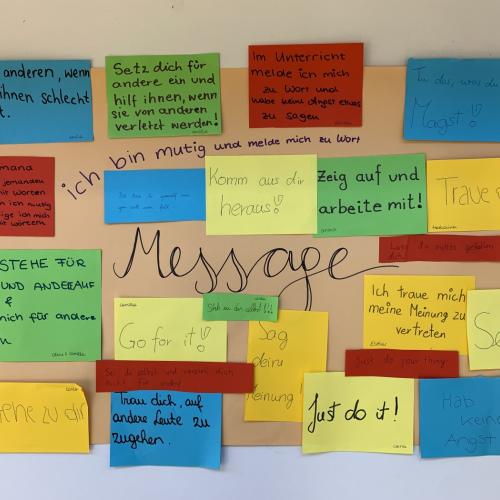 anderen, wenn
ihnen schlecht
t.
Setz dich für
andere ein und
hilf ihnen, wenn
sie von anderen
verletzt werden!
Im Unterricht
melde ich mich
zu Wort und
habe keine Angst etwas
zu sagen
Tu das, was du
Magst!
ich bin mutig und melde mich zu Wort
mana
jemanden
mit Worten
ich mutig
ige ich mich
Worten
Komm aus dir
heraus!
Zeig auf und
arbeite mit!
Traue
Message
STEHE FÜR
UND ANDERE AUF
&
mich für andere
n
Go for it!
Steh zu dir selbst!!
Sag
deine
Meinung
Ich traue mich
meine Meinung zu
vertreten
Se
Sei du selbst und verstell dich
nicht für andere!
Just do your thing
Gehe zu dir
Trau dich, auf
andere Leute zu
zugehen.
Just do it!
Hab
keine
Angst